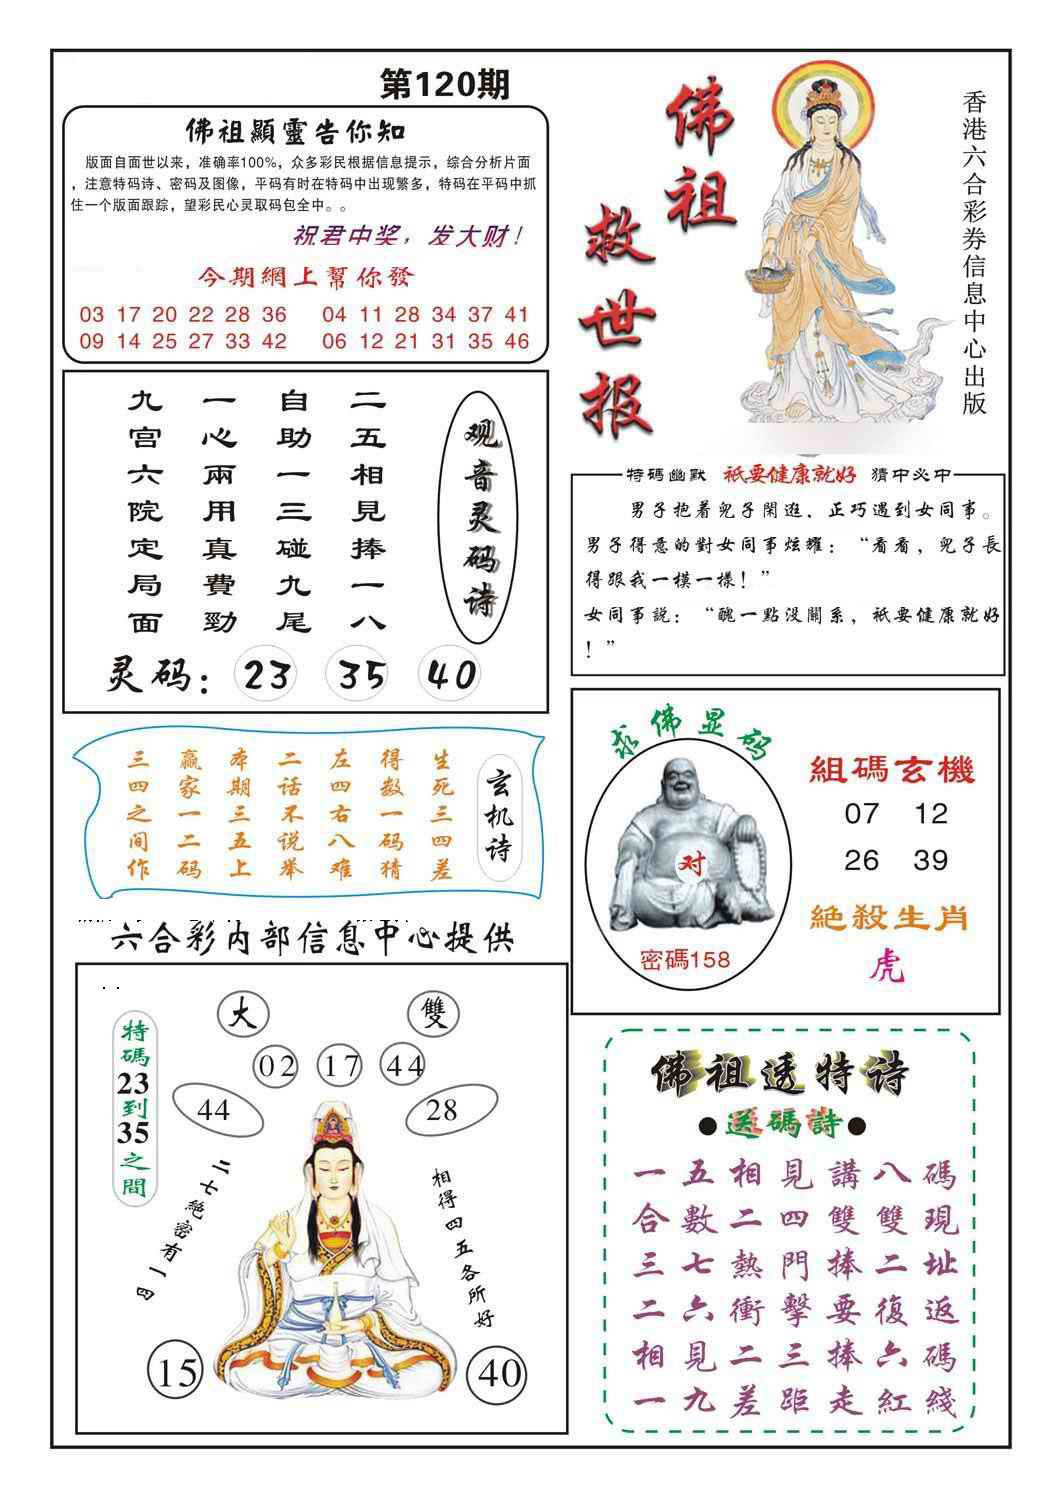 第120期
佛祖顯靈告你知
版面自面世以来，准确率100%，众多彩民根据信息提示，综合分析片面
，注意特码诗、密码及图像，平码有时在特码中出现繁多，特码在平码中抓
住一个版面跟踪，望彩民心灵取码包全中。。
祝君中奖，发大财！
今期網上幫你發
03 17 20 22 28 36 04 11 28 34 37 41
09 14 25 27 33 42 06 12 21 31 35 46
佛祖
救世报
香港六合彩券信息中心出版
观音灵码诗
二五相見捧一八
自助一三碰九尾
一心兩用真費勁
九宫六院定局面
灵码：23 35 40
特碼幽默 祇要健康就好 猜中必中
男子抱着兒子閑逛，正巧遇到女同事。
男子得意的對女同事炫耀：“看看，兒子長
得跟我一模一樣！”
女同事説：“醜一點没關系，祇要健康就好
！”
玄机诗
生死三四差
得数一码猜
左四右八难
二话不说举
本期三五上
赢家一二码
三四之间作
求佛显码
对
密碼158
組碼玄機
07 12
26 39
絶殺生肖
虎
六合彩内部信息中心提供
大 雙
02 17 44
44 28
特碼23到35之間
二七絶密有一四
相得四五各所好
15 40
佛祖透特诗
●送碼詩●
一五相見講八碼
合數二四雙雙現
三七熱門捧二址
二六衝擊要復返
相見二三捧六碼
一九差距走紅綫